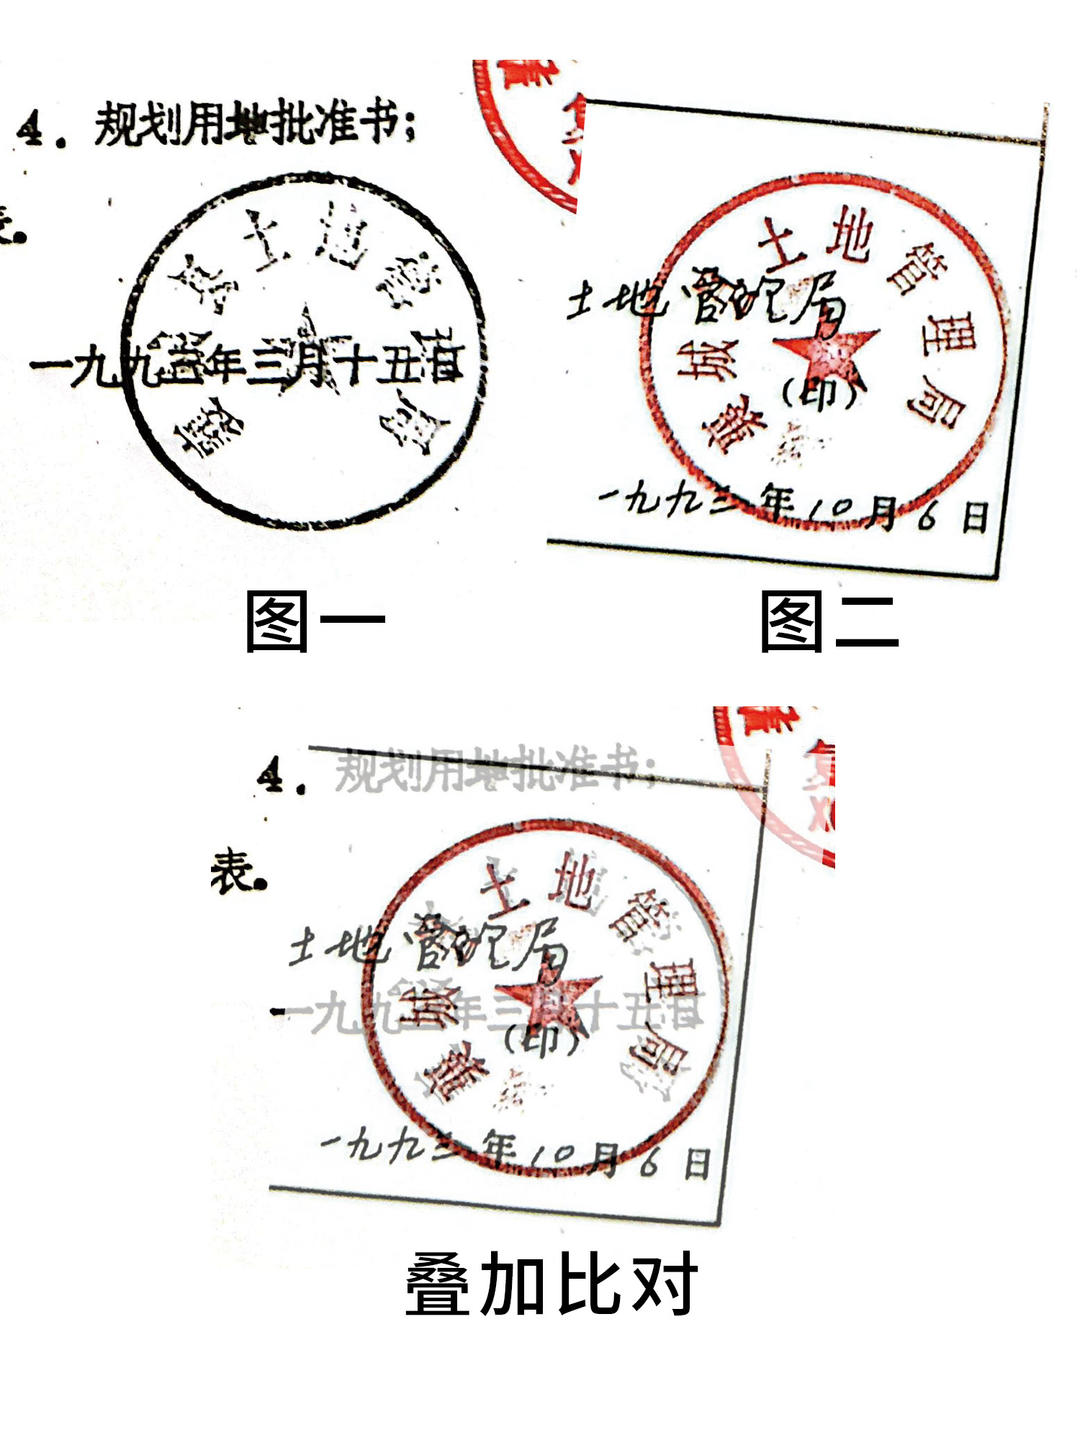 4. 规划用地批准书;
表。
土地管
局
一九九三年三月十五日
土地管理局
城
土地管理局
(印)
一九九三年10月6日
图一
图二
4. 规划用地批准书;
表。
土地管理局
城
土地管理局
一九九三年三月十五日
(印)
一九九三年10月6日
叠加比对